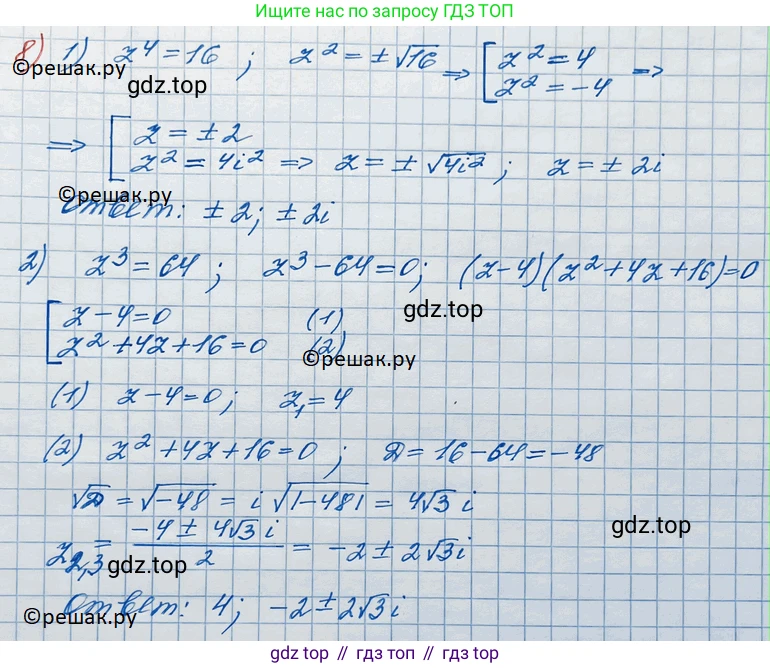 Ищите по запросу ГДЗ ТОП
8) 1) z⁴ = 16 ; z² = ±√16 ⇒ [ z² = 4 ⇒
z² = −4
©решак.ру
gdz.top
⇒ [ z = ± 2
z² = 4i² ⇒ z = ± √4i² ; z = ± 2i
©решак.ру
Ответ: ± 2; ± 2i
2) z³ = 64 ; z³ − 64 = 0; (z−4)(z² + 4z + 16) = 0
gdz.top
[ z − 4 = 0 (1)
z² + 4z + 16 = 0 (2)
©решак.ру
(1) z − 4 = 0 ; z₁ = 4
(2) z² + 4z + 16 = 0 ; D = 16 − 64 = −48
√D = √−48 = i √|−48| = 4√3 i
z₂,₃ = (−4 ± 4√3 i)/2 = −2 ± 2√3 i
gdz.top
gdz.top
Ответ: 4; −2 ± 2√3 i
©решак.ру
gdz.top // гдз топ // gdz.top